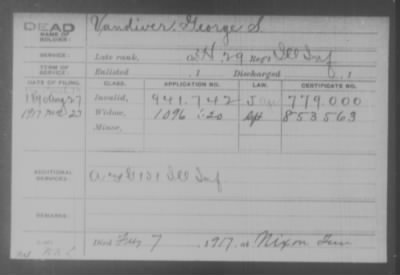 DEAD Vandiver, George S.
NAME OF SOLDIER:
SERVICE: Late rank, H, 29 Reg't Ill Inf
TERM OF SERVICE: Enlisted , 1 Discharged , 1
DATE OF FILING. CLASS. APPLICATION NO. LAW. CERTIFICATE NO.
1890 Aug 27 Invalid, 941.742 779.000
1917 27 Widow, 1096 120 853563
Minor,
ADDITIONAL SERVICES: Ill Inf
REMARKS:
Died 7, 1917, at Nixon Tenn